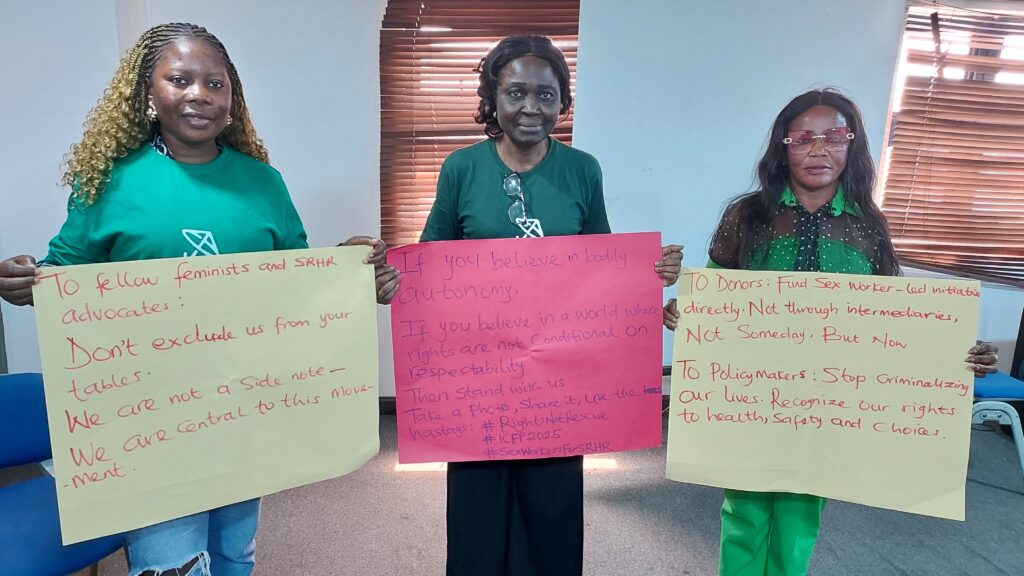 To fellow feminists and SRHR
advocates:
Don't exclude us from your
tables.
We are not a side note-
We are central to this Move-
-ment.
If you believe in bodily
autonomy,
If you believe in a world where
rights are not Conditional on
respectability
Then Stand with us
Take a Photo, Share it, Use the
hastags: #RightsNotRescue
#ICFP2025
#SexWorkersForSRHR
To Donors: Find Sex Worker-Led initiative
directly. Not through intermediaries,
Not Someday, But Now
To Policymakers: Stop Criminalizing
our lives. Recognize our rights
to health, Safety and Choices.